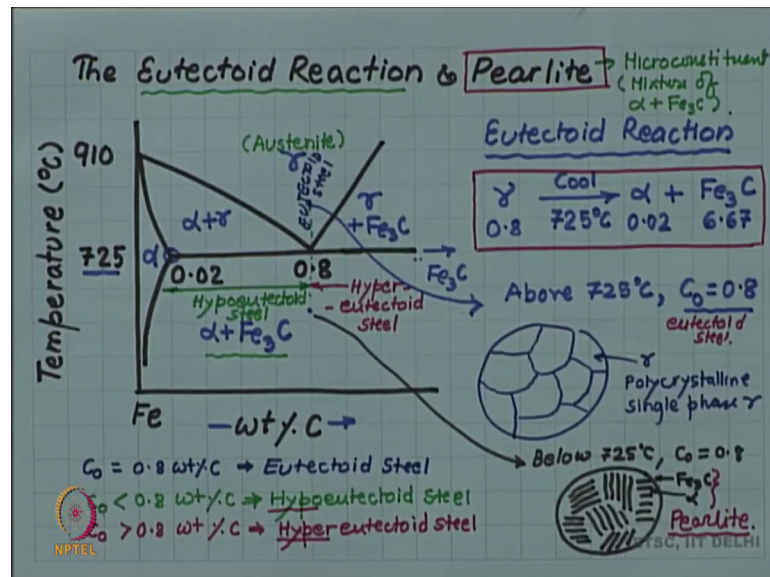 The Eutectoid Reaction & Pearlite → Microconstituent
(Mixture of
α + Fe₃C).
Eutectoid Reaction
γ Cool → α + Fe₃C
0.8 725°C 0.02 6.67
Temperature (°C)
910
725
(Austenite)
γ
EUTECTOID
STEEL
α+γ
γ
+ Fe₃C
α
0.02
0.8
Fe₃C
Hypoeutectoid
steel
Hyper-
-eutectoid
steel
α + Fe₃C
Fe
— wt % C →
Above 725°C, C₀ = 0.8
eutectoid
steel.
γ
Polycrystalline
single phase γ
Below 725°C, C₀ = 0.8
Fe₃C
α
Pearlite.
C₀ = 0.8 wt % C → Eutectoid Steel
C₀ < 0.8 wt % C ⇒ Hypoeutectoid Steel
C₀ > 0.8 wt % C ⇒ Hypereutectoid steel
NPTEL
ETSC, IIT DELHI